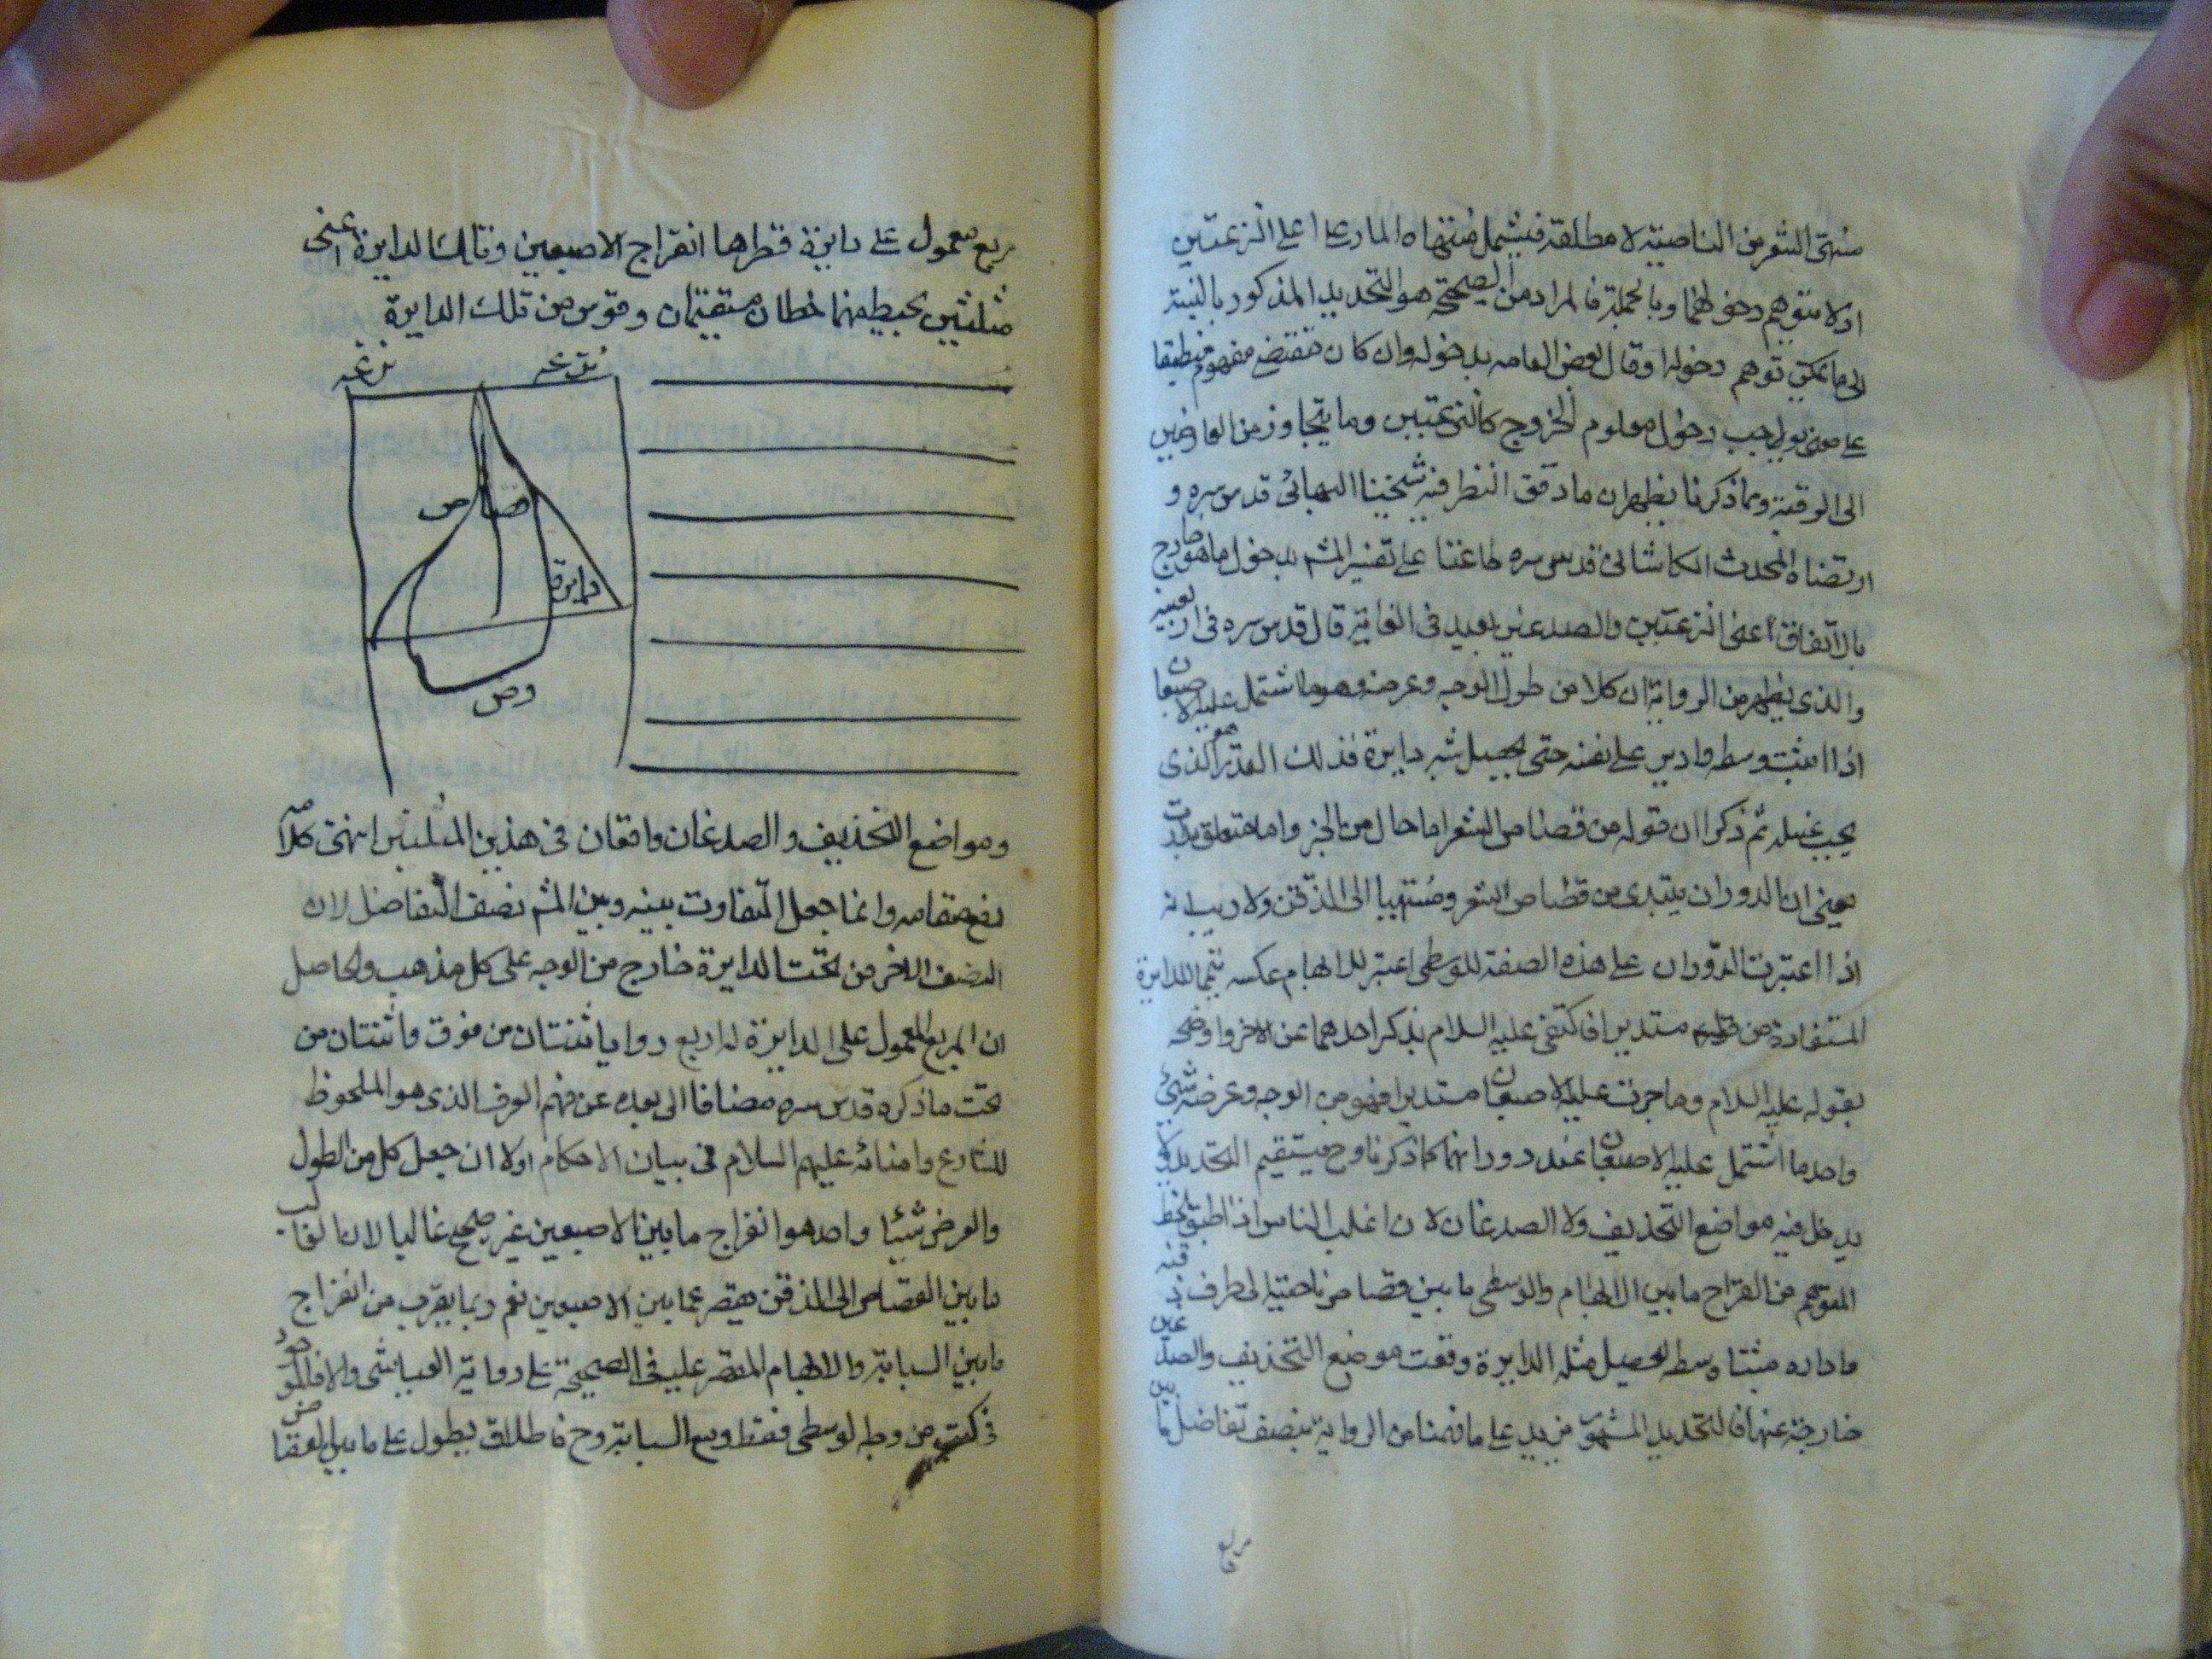 منتهى الشعر من الناصية لا مطلقة فيشمل منتهاه المار على اعلى النزعتين
اذ لا يتوهم دخولهما وبالجملة فالمراد من الصحيحة هو التحديد المذكور بالنسبة
الى ما يمكن توهم دخوله وقال بعض العامه بدخوله وان كان مقتضى مفهوم
على معنى يوجب دخول معلوم الخروج كالنزعتين وما يتجاوز من العارضين
الى الرقبة وبما ذكرنا يظهر ان ما دقق النظر فيه شيخنا البهائى قدس سره و
ارتضاه المحدث الكاشانى قدس سره طاعنا على تفسير المشـ بدخول ما هو خارج
بالاتفاق اعنى النزعتين والصدغين بعيد فى الغاية قال قدس سره فى اربعينه
والذى يظهر من الرواية ان كلا من طول الوجه وعرضه هو ما اشتمل عليه الاصبعان
اذا اثبت وسطه وادير على نفسه حتى يحصل شبه دايرة فذلك القدر هو الذى
يجب غسله ثم ذكر ان قوله من قصاص الشعر اما حال من الخبر واما متعلق بدارت
يعنى ان الدوران يبتدى من قصاص الشعر ومنتهيا الى الذقن ولا ريب انه
اذا اعتبرت الدوران على هذه الصفة للوسطى اعتبر للابهام عكسه تتميما للدايرة
المستفادة من قوله مستديرا فاكتفى عليه السلام بذكر احدهما عن الاخر واوضحه
بقوله عليه السلام وما جرت عليه الاصبعان مستديرا فهو من الوجه وعرضه شئ
واحد ما اشتمل عليه الاصبعان عند دورانهما كما ذكرنا وح يستقيم التحديد ولا
يدخل فيه مواضع التحذيف ولا الصدغان لان اغلب الناس اذا طبق الخط
المتوهم من انفراج ما بين الابهام والوسطى ما بين قصاص ناصيته الى طرف ذقنه
واداره مثبتا وسطه ليحصل مثله الدايرة وقعت موضع التحذيف والصدغين
خارجة عنها فالتحديد المشهور يزيد على ما فهمنا من الرواية بنصف تفاضل ما بين
مربع
مربع معمول على دايرة قطرها انفراج الاصبعين وتلك الدايرة اعنى
مثلثين يحيط بهما خطان مستقيمان وقوس من تلك الدايرة
نزعه
نزعه
قصاص
دايرة
ومواضع التحذيف والصدغان واقعان فى هذين المثلثين انتهى كلامه
رفع مقامه وانما جعل التفاوت بينه وبين المشـ نصف التفاضل لان
النصف الاخر من تحت الدايرة خارج من الوجه على كل مذهب والحاصل
ان المربع المعمول على الدايرة له اربع زوايا اثنتان من فوق واثنتان من
تحت ما ذكره قدس سره مضافا الى بعده عن فهم العرف الذى هو الملحوظ
للشارع وامنائه عليهم السلام فى بيان الاحكام اولا ان جعل كل من الطول
والعرض شيئا واحدا هو انفراج ما بين الاصبعين غير صحيح غالبا لان الغالب
ما بين القصاص الى الذقن يقصر عما بين الاصبعين نعم ربما يقرب من انفراج
ما بين السبابة والابهام المقتصر عليه فى الصحيحة على رواية العياشى والا فالموجود
فى من وجه الوسطى فقط ومع السبابة وح فاطلاق يطول على ما بين القصاص